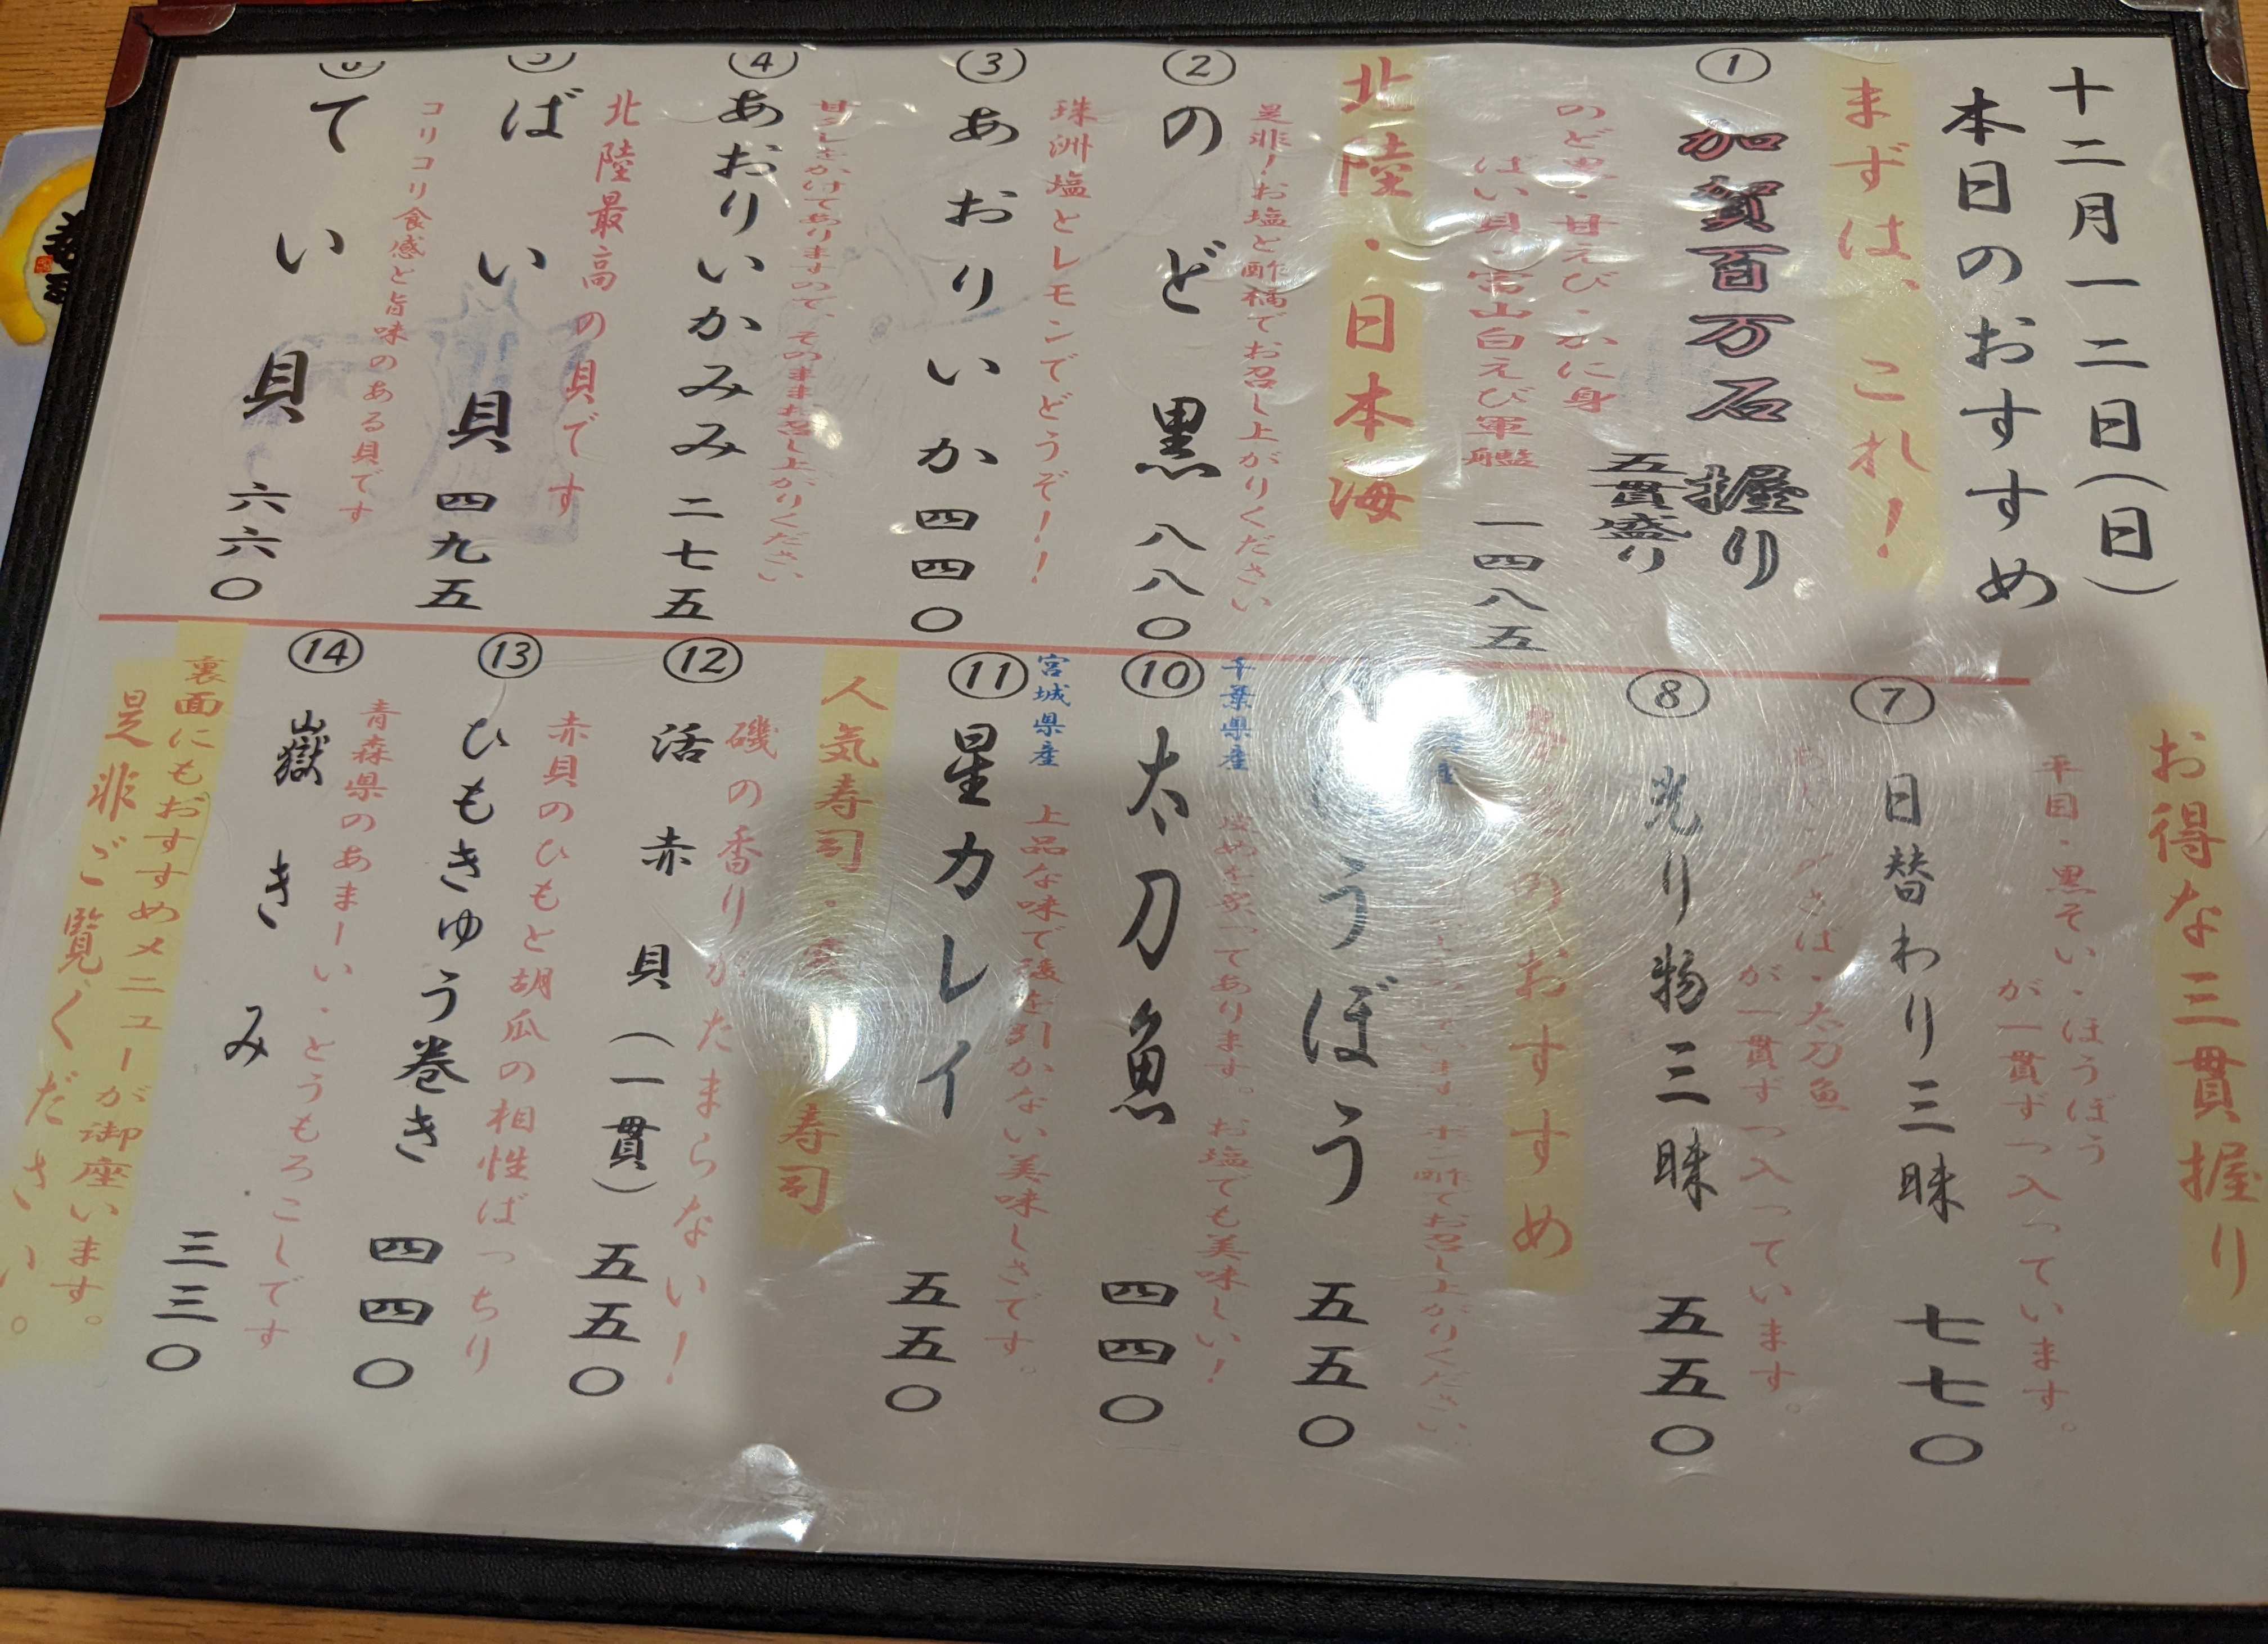 十二月一二日(日)
本日のおすすめ
まずは、これ!
① 加賀百万石握り
五貫盛り
のど黒・甘えび・かに身
ばい貝・富山白えび軍艦
一四八五
北陸・日本海
是非!お塩と酢橘でお召し上がりください
② のど黒 八八〇
珠洲塩とレモンでどうぞ!!
③ あおりいか 四四〇
甘だしをかけてありますので、そのままお召し上がりください
④ あおりいかみみ 二七五
北陸最高の貝です
⑤ ばい貝 四九五
コリコリ食感と旨味のある貝です
⑥ てい貝 六六〇
お得な三貫握り
平目・黒そい・ほうぼう
が一貫ずつ入っています。
⑦ 日替わり三昧 七七〇
さば・太刀魚
が一貫ずつ入っています。
⑧ 光り物三昧 五五〇
のおすすめ
酢でお召し上がりください。
ほうぼう 五五〇
千葉県産
てあります。お塩でも美味しい!
⑩ 太刀魚 四四〇
宮城県産 上品な味で後を引かない美味しさです。
⑪ 星カレイ 五五〇
人気寿司・
寿司
磯の香りがたまらない!
⑫ 活赤貝(一貫) 五五〇
赤貝のひもと胡瓜の相性ばっちり
⑬ ひもきゅう巻き 四四〇
青森県のあまーい・とうもろこしです
⑭ 嶽きみ 三三〇
裏面にもおすすめメニューが御座います。
是非ご覧ください。